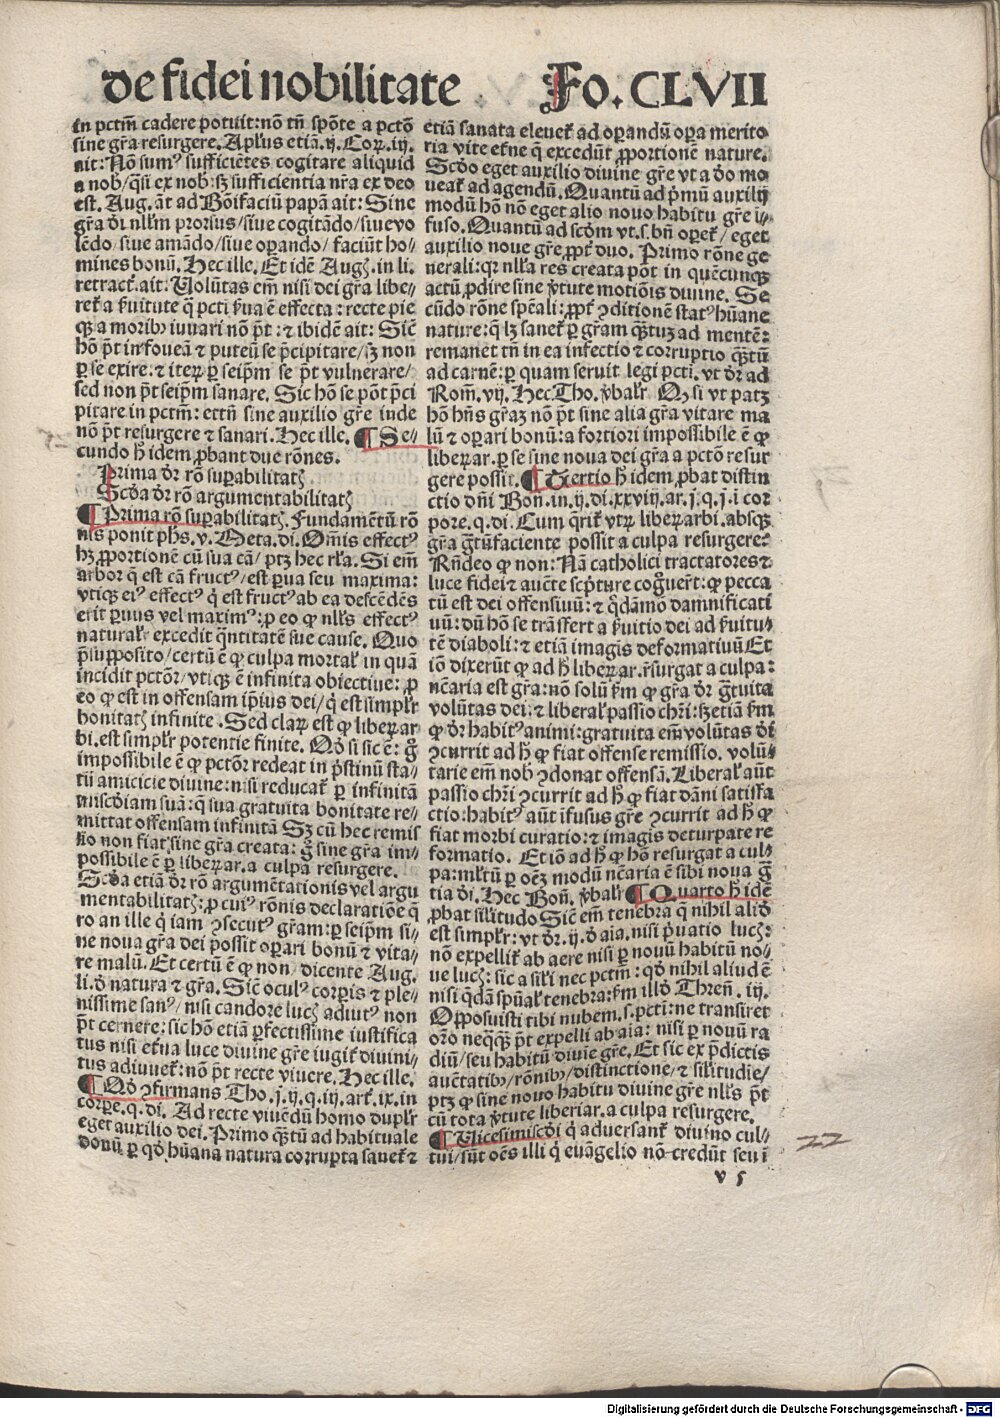 de fidei nobilitate . Fo. CLVII
in pctm̄ cadere potuit: nō tn̄ spōte a pctō
sine gr̄a resurgere. Apl'us etiā. ij. Cor. iij.
ait: Nō sumꝰ sufficiētes cogitare aliquid
a nob/ q̄si ex nob: sꝫ sufficientia nr̄a ex deo
est. Aug. āt ad Bōifaciū papā ait: Sine
gr̄a dī nllm̄ prorsus/ siue cogitādo/ siue vo
lēdo/ siue amādo/ siue oꝑando/ faciūt ho⸗
mines bonū. Hec ille. Et idē Augꝰ. in li.
retract. ait: Uolūtas em̄ nisi dei gr̄a libe⸗
ret a ẜuitute q̄ pcti ẜua ē effecta: recte pie
qꝫ a moribꝰ iuuari nō p̄t: ⁊ ibidē ait: Sic̄
hō p̄t in foueā ⁊ puteū se p̄cipitare/ sꝫ non
ꝑ se exire: ⁊ iteꝝ ꝑ seip̄m se p̄t vulnerare/
sed non p̄t seip̄m sanare. Sic hō se pōt p̄ci
pitare in pctm̄: et tn̄ sine auxilio gr̄e inde
nō p̄t resurgere ⁊ sanari. Hec ille. ¶ Se⸗
cundo h̄ idem ꝓbant due rōnes.
Prima dr̄ rō suꝑabilitatꝭ
Scd̄a dr̄ rō argumentabilitatꝭ
¶ Prima rō suꝑabilitatꝭ. Fundamētū rō
nis ponit phs. v. Meta. di. Om̄is effectꝰ
hꝫ ꝓportionē cū sua cā/ ptꝫ hec rl'a. Si em̄
arbor q̄ est cā fructꝰ/ est parua seu maxima:
vtiqꝫ eiꝰ effectꝰ q̇ est fructꝰ ab ea descēdēs
erit paruus vel maximꝰ: ꝓ eo ꝙ nll's effectꝰ
natural' excedit q̄ntitatē sue cause. Quo
p̄supposito/ certū ē ꝙ culpa mortal' in quā
incidit pctōr/ vtiqꝫ ē infinita obiectiue: ꝓ
eo ꝙ est in offensam ip̄ius dei/ q̇ est simpl'r
bonitatꝭ infinite. Sed claꝝ est ꝙ libeꝝ ar
bi. est simpl'r potentie finite. Qd̄ si sic ē: g̊
impossibile ē ꝙ pctōr redeat in p̄stinū sta⸗
tū amicicie diuine: nisi reducat̄ ꝑ infinitā
miscd̄iam suā: q̄ sua gratuita bonitate re⸗
mittat offensam infinitā Sꝫ cū hec remis
sio non fiat sine gr̄a creata: g̊ sine gr̄a im⸗
possibile ē ꝑ libeꝝ ar. a culpa resurgere.
Scd̄a etiā dr̄ rō argumētationis vel argu
mentabilitatꝭ: ꝓ cuiꝰ rōnis declaratiōe q̄
ro an ille q̇ iam ꝯsecutꝰ gr̄am: ꝑ seip̄m si⸗
ne noua gr̄a dei possit oꝑari bonū ⁊ vita⸗
re malū. Et certū ē ꝙ non/ dicente Aug.
li. d̄ natura ⁊ gr̄a. Sic̄ oculꝰ corꝑis ⁊ ple⸗
nissime sanꝰ/ nisi candore lucꝭ adiutꝰ non
p̄t cernere: sic hō etiā ꝑfectissime iustifica
tus nisi et̄na luce diuine gr̄e iugit̄ diuini⸗
tus adiuuet̄: nō p̄t recte viuere. Hec ille.
¶ Qd̄ ꝯfirmans Tho. j. ij. q. iij. art̄. ix. in
corꝑe. q. di. Ad recte viuēdū homo dupl'r
eget auxilio dei. Primo q̄tū ad habituale
donū ꝑ qd̄ hūana natura corrupta sanet̄ ⁊
etiā sanata eleuet̄ ad oꝑandū oꝑa merito⸗
ria vite et̄ne q̄ excedūt ꝓportionē nature.
Scd̄o eget auxilio diuine gr̄e vt a d̄o mo
ueat̄ ad agendū. Quantū ad p̄mū auxilij
modū hō nō eget alio nouo habitu gr̄e i⸗
fuso. Quantū ad scd̄m vt. s. bn̄ oꝑet̄/ eget
auxilio noue gr̄e ꝓpt̄ duo. Primo rōne ge
nerali: qꝛ nll'a res creata pōt in quēcunqꝫ
actū ꝓdire sine v̄tute motiōis diuine. Se
cūdo rōne spēali: ꝓpt̄ ꝯditionē statꝰ hūane
nature: q̄ lꝫ sanet̄ ꝑ gr̄am q̄ntū ad mentē:
remanet tn̄ in ea infectio ⁊ corruptio q̄ntū
ad carnē: ꝑ quam seruit legi pcti. vt dr̄ ad
Rom̄. vij. Hec Tho. v̄bal'r. Qꝫ si vt patꝫ
hō hn̄s gr̄aꝫ nō p̄t sine alia gr̄a vitare ma
lū ⁊ oꝑari bonū: a fortiori impossibile ē ꝙ
libeꝝ ar. ꝑ se sine noua dei gr̄a a pctō resur
gere possit. ¶ Tertio h̄ idem ꝓbat distin
ctio dn̄i Bon. in. ij. di. xxviij. ar. j. q. j. i cor
pore. q. di. Cum q̄rit̄ vtꝝ libeꝝ arbi. absqꝫ
gr̄a gr̄tūfaciente possit a culpa resurgere?
Rn̄deo ꝙ non: Nā catholici tractatores ⁊
luce fidei ⁊ auc̄te sc̄pture cog̊uer̄t: ꝙ pecca
tū est dei offensiuū: ⁊ q̇dāmō damnificati
uū: dū hō se trāsfert a ẜuitio dei ad ẜuitu⸗
tē diaboli: ⁊ etiā imagis deformatiuū Et
iō dixerūt ꝙ ad h̄ libeꝝ ar. r̄surgat a culpa:
nc̄aria est gr̄a: nō solū ẜm ꝙ gr̄a dr̄ gr̄tuita
volūtas dei: ⁊ liberal' passio chr̄i: sꝫ etiā ẜm
ꝙ dr̄ habitꝰ animi: gratuita em̄ volūtas dī
ꝯcurrit ad h̄ ꝙ fiat offense remissio. volū⸗
tarie em̄ nob ꝯdonat offensā. Liberal' aūt
passio chr̄i ꝯcurrit ad h̄ ꝙ fiat dāni satisfa
ctio: habitꝰ aūt ifusus gr̄e ꝯcurrit ad h̄ ꝙ
fiat morbi curatio: ⁊ imagis deturpate re
formatio. Et iō ad h̄ ꝙ hō resurgat a cul⸗
pa: ml'tū ꝑ oēꝫ modū nc̄aria ē sibi noua gr̄
tia dī. Hec Bon. v̄bal'r ¶ Quarto h̄ idē
ꝓbat sil'itudo Sic̄ em̄ tenebra q̄ nihil alid̄
est simpl'r: vt dr̄. ij. d̄ aīa. nisi p̄uatio lucꝭ:
nō expellit̄ ab aere nisi ꝑ nouū habitū no⸗
ue lucꝭ: sic a sil'i nec pctm̄: qd̄ nihil aliud ē
nisi q̇dā sp̄ūal' tenebra: ẜm illd̄ Thren̄. iij.
Opposuisti tibi nubem. s. pcti: ne transiret
or̄o neqꝫ p̄t expelli ab aīa: nisi ꝑ nouū ra
diū/ seu habitū diuīe gr̄e. Et sic ex p̄dictis
auc̄tatibꝰ/ rōnibꝰ/ distinctione/ ⁊ sil'itudīe/
ptꝫ ꝙ sine nouo habitu diuine gr̄e nll's p̄t
cū tota v̄tute liberi ar. a culpa resurgere.
¶ Uicesimiscd̄i q̇ aduersant̄ diuino cul⸗
tui/ sūt oēs illi q̇ euāgelio nō credūt seu ī
22
v 5
Digitalisierung gefördert durch die Deutsche Forschungsgemeinschaft - DFG